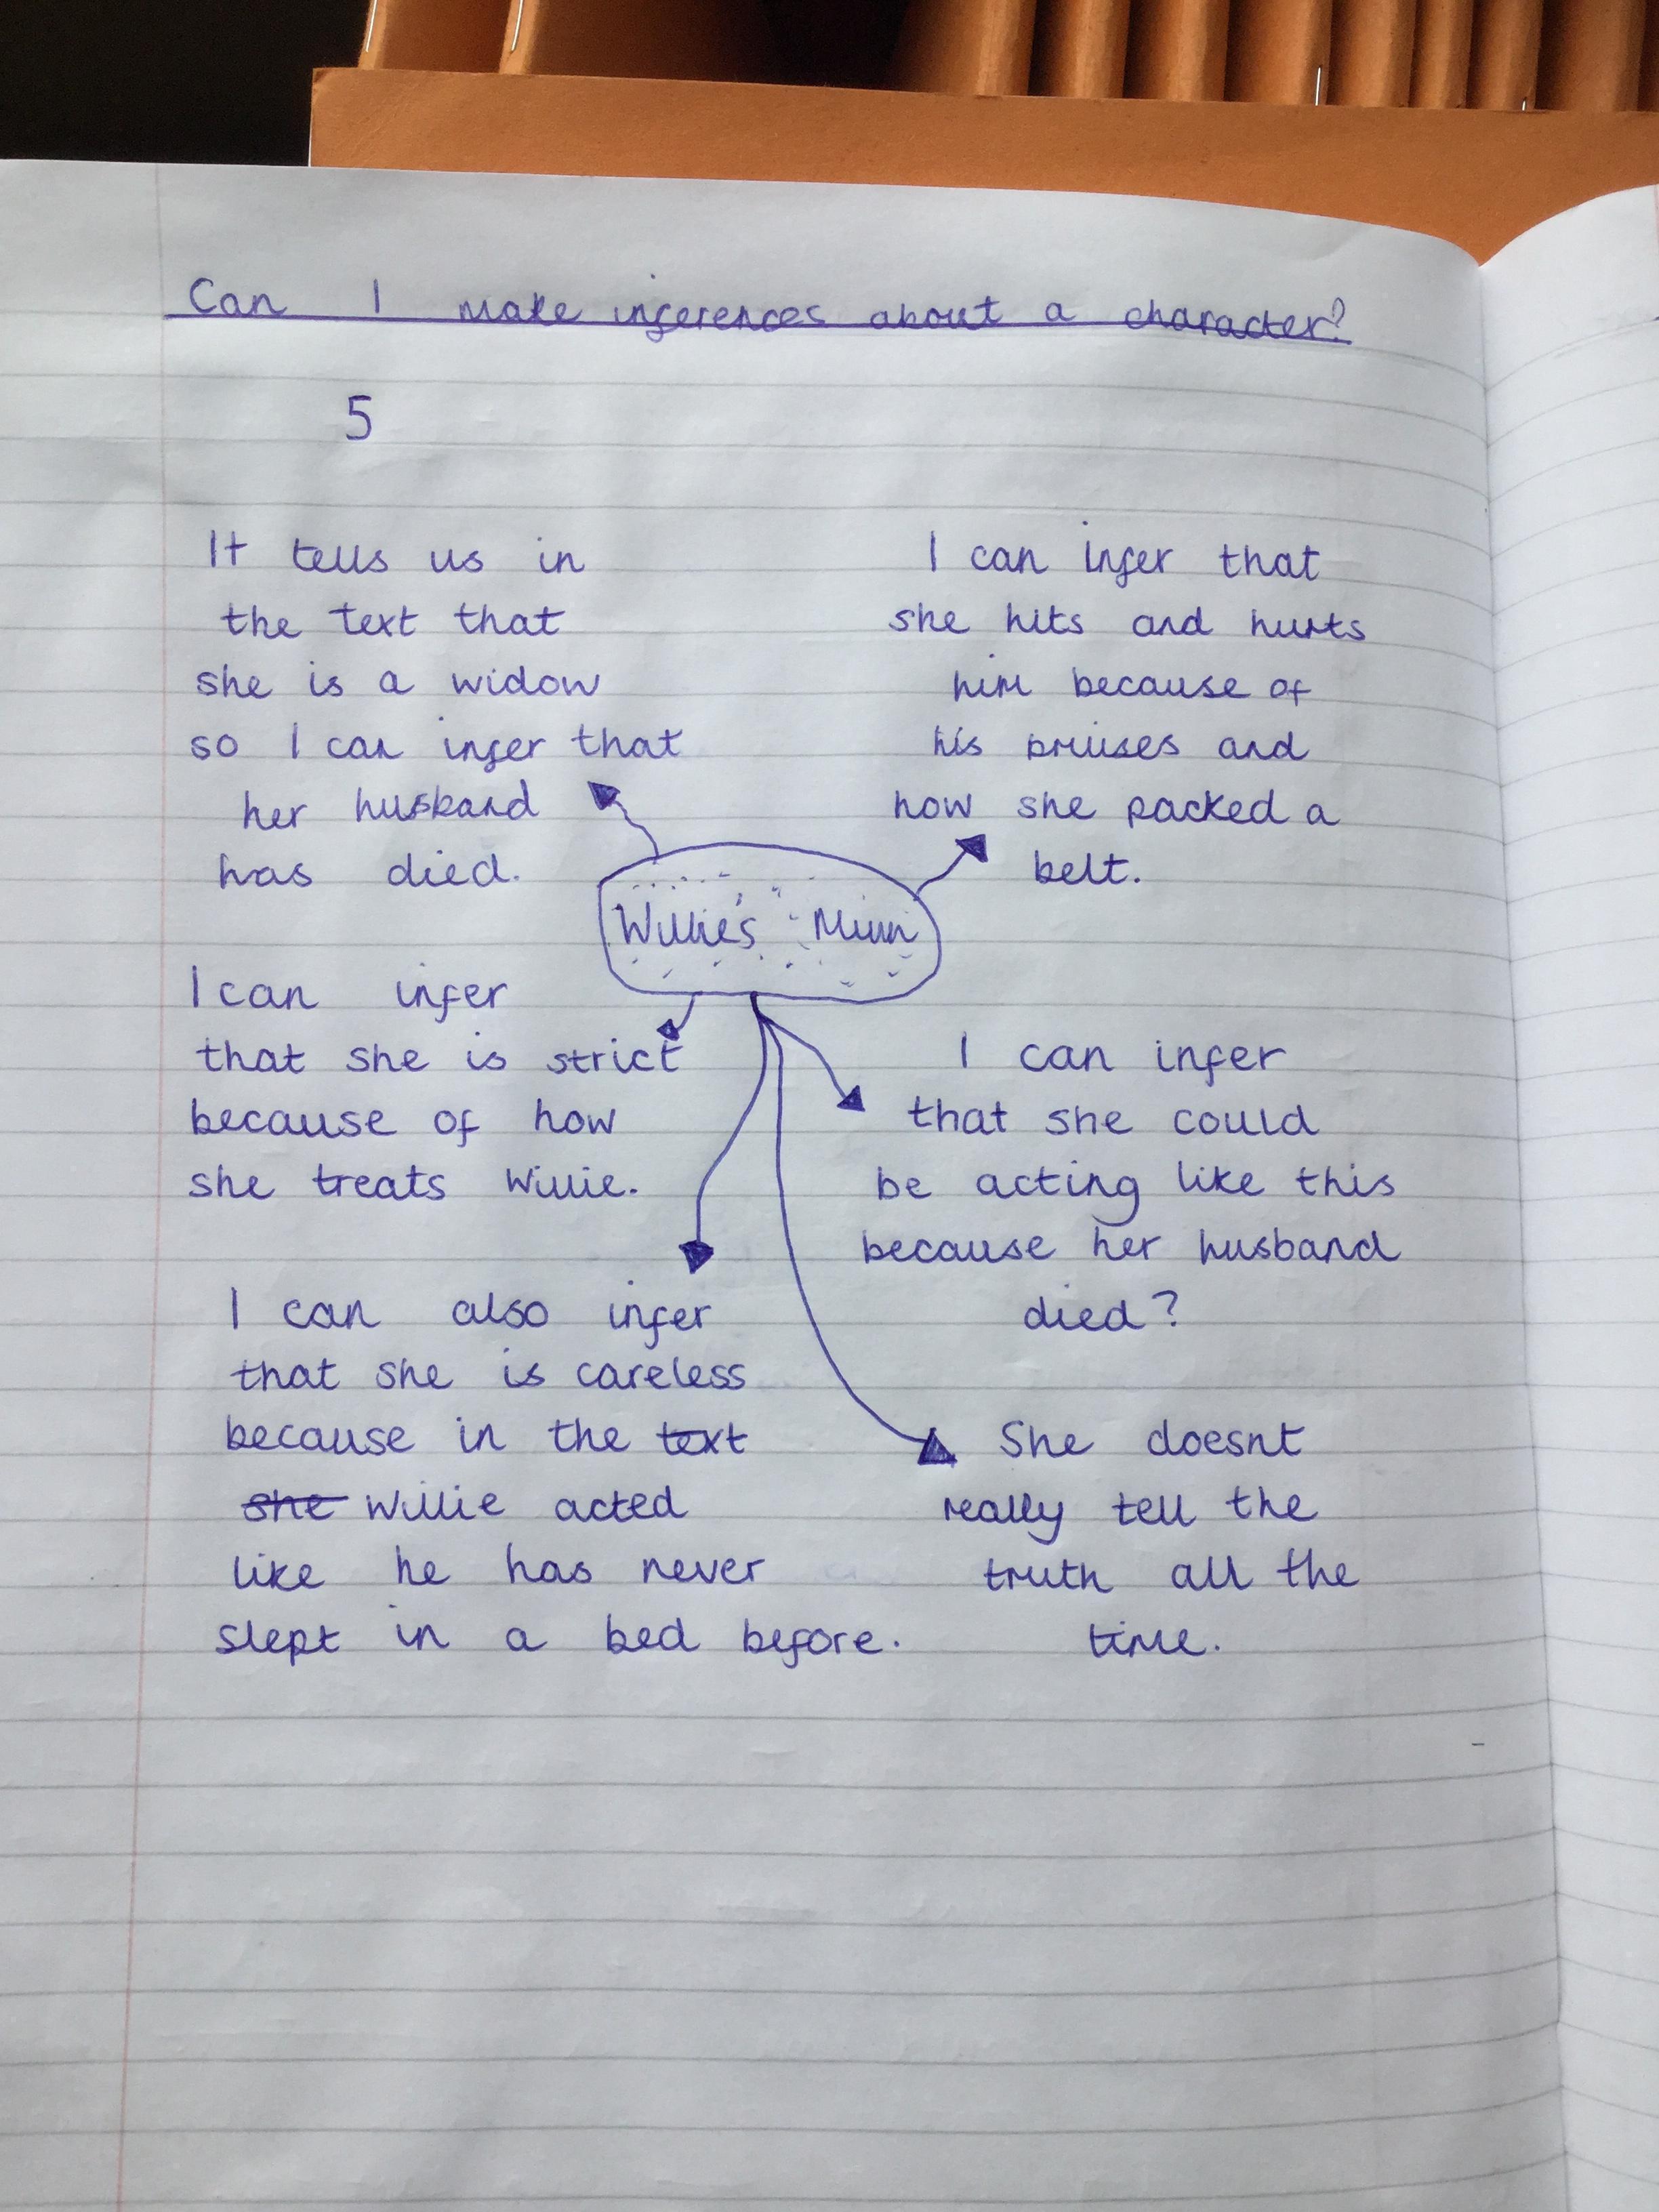 Can I make inferences about a character?
5
It tells us in
the text that
she is a widow
so I can infer that
her husband
has died.
I can infer that
she hits and hurts
him because of
his bruises and
how she packed a
belt.
Willie's Mum
I can infer
that she is strict
because of how
she treats Willie.
I can infer
that she could
be acting like this
because her husband
died?
I can also infer
that she is careless
because in the text
she Willie acted
like he has never
slept in a bed before.
She doesnt
really tell the
truth all the
time.